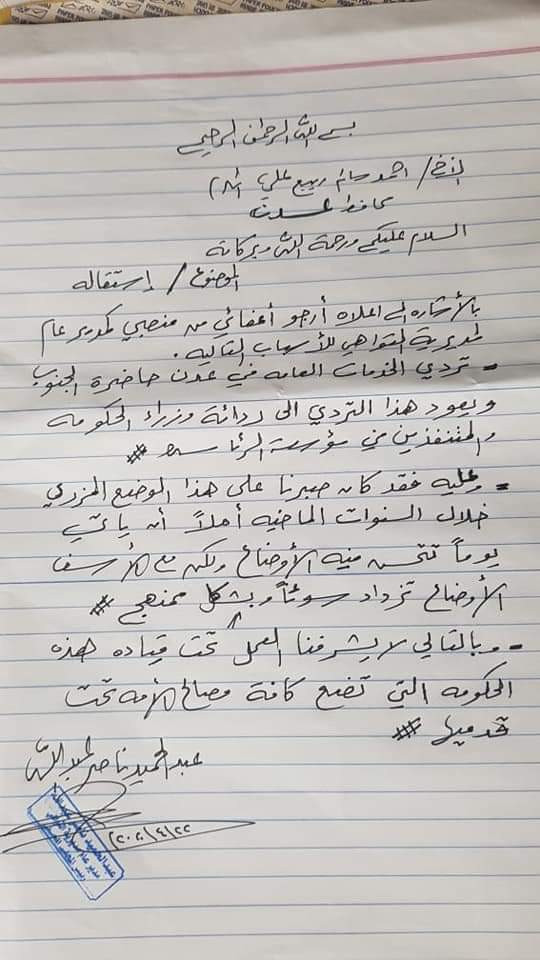 بسم الله الرحمن الرحيم
الأخ/ احمد سالم ربيع علي
محافظ عدن
السلام عليكم ورحمة الله وبركاته
الموضوع / إستقاله
بالأشاره الى اعلاه أرجو أعفائي من منصبي كمدير عام
لمديرية التواهي للأسباب التاليه .
- تردي الخدمات العامه في عدن حاضرة الجنوب
ويعود هذا التردي الى ردائة وزراء الحكومه
والمتنفذين من مؤسسة الرئاسه #
- وعليه فقد كان صبرنا على هذا الوضع المزري
خلال السنوات الماضيه أملاً أن يأتي
يوماً تتحسن فيه الأوضاع ولكن مع الأسف
الأوضاع تزداد سوئاً وبشكل ممنهج #
- وبالتالي لا يشرفنا العمل تحت قياده هذه
الحكومه التي تضع كافة مصالح الأمه تحت
قدميها #
عبدالحميد ناصر